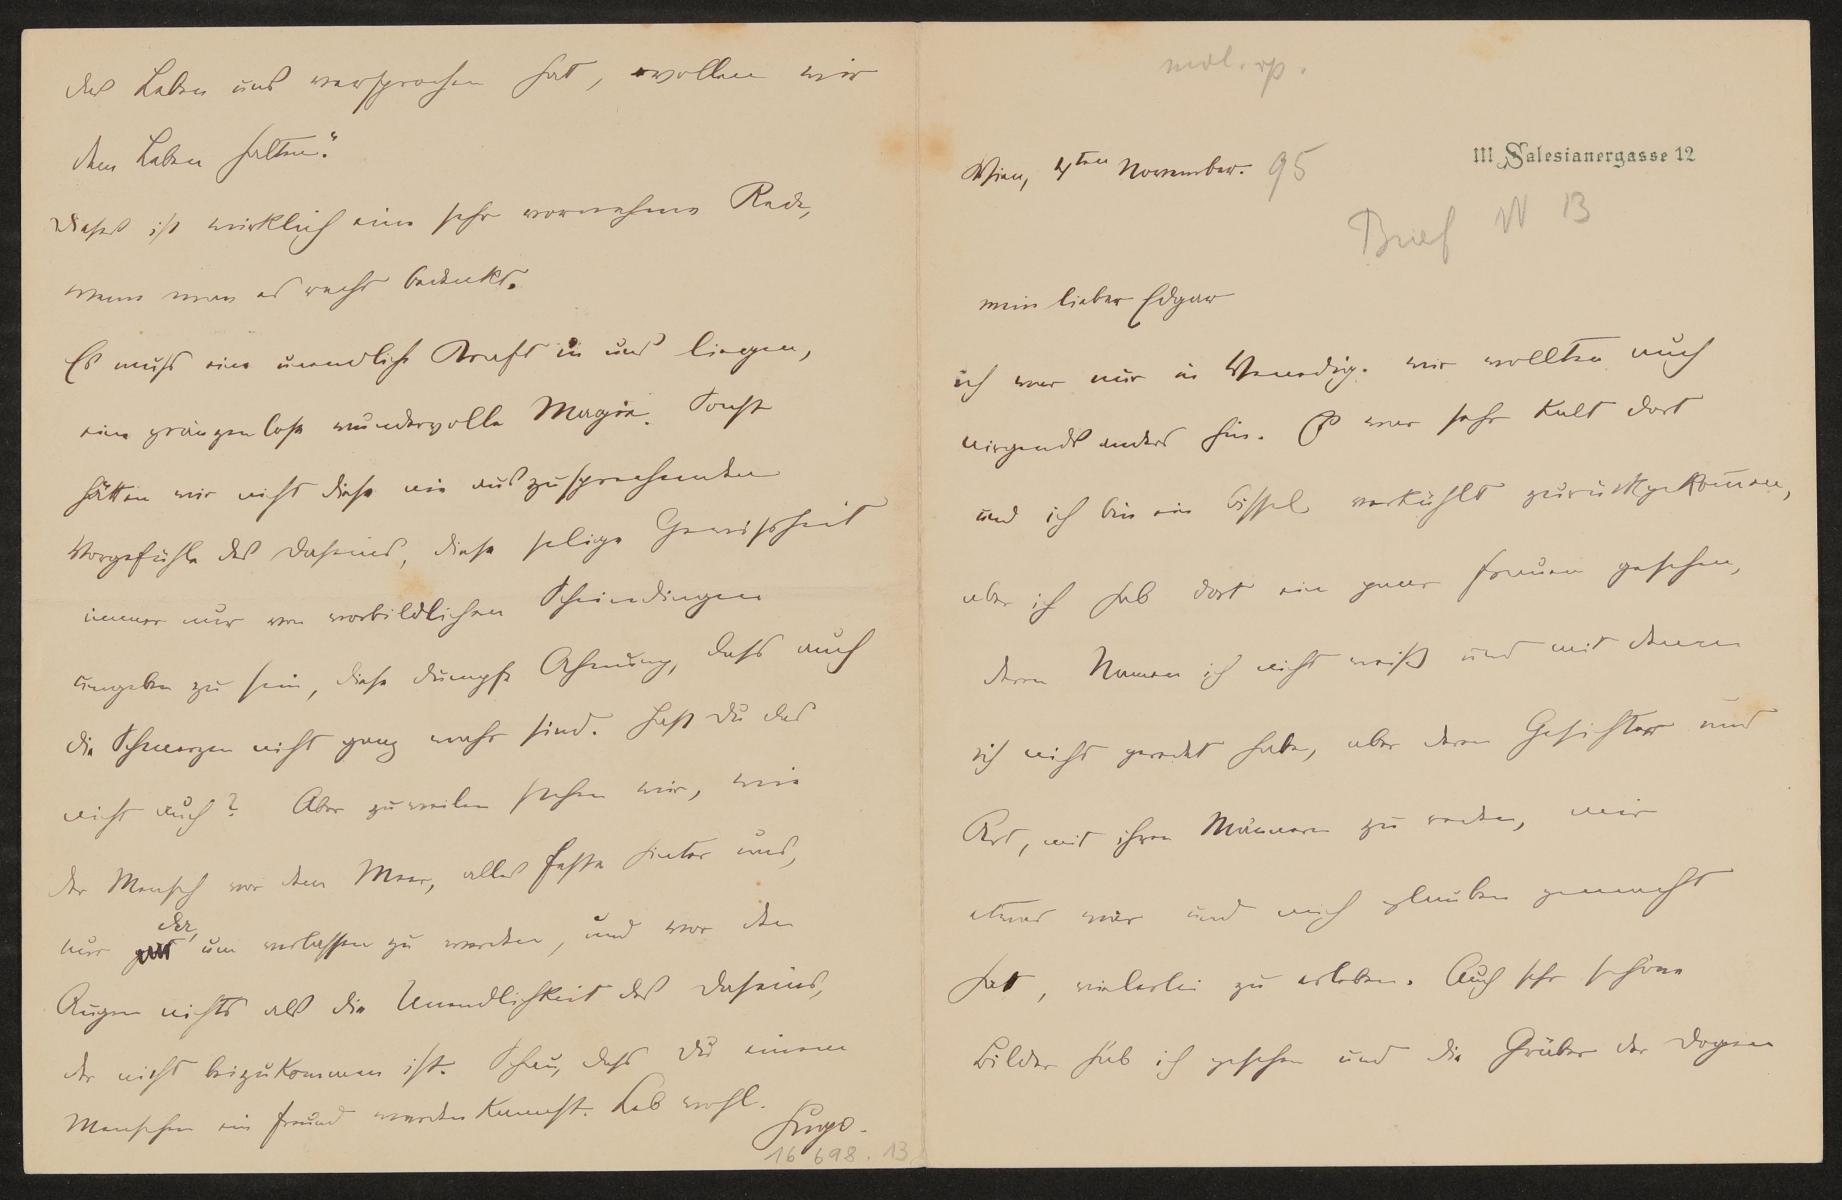 III Salesianergasse 12
Wien, 4ten November. 95
Brief N 13
mein lieber Edgar
ich war nur in Venedig. wir wollten auch
nirgends anders hin. Es war sehr kalt dort
und ich bin ein bissel verkühlt zurückgekommen,
aber ich hab dort ein paar Frauen gesehen,
deren Namen ich nicht weiß und mit denen
ich nicht geredet habe, aber deren Gesichter und
Art, mit ihren Männern zu reden, mir
etwas war und mich glauben gemacht
hat, vielerlei zu erleben. Auch sehr schöne
Bilder hab ich gesehen und die Gräber der Dogen
das Leben uns versprochen hat, wollen wir
dem Leben halten."
Dieses ist wirklich eine sehr vornehme Rede,
wenn man es recht bedenkt.
Es muss eine unendliche Kraft in uns liegen,
eine gränzenlose wundervolle Magie. Sonst
hätten wir nicht diese nie auszusprechenden
Vorgefühle des Daseins, diese selige Gewissheit
immer nur von vorbildlichen Scheindingen
umgeben zu sein, diese dumpfe Ahnung, dass auch
die Schmerzen nicht ganz wahr sind. Hast Du das
nicht auch? Aber zuweilen stehen wir, wie
der Mensch vor dem Meer, alles Feste hinter uns,
nur da, um verlassen zu werden, und vor den
Augen nichts als die Unendlichkeit des Daseins,
der nicht beizukommen ist. Schau, dass Du einem
Menschen ein Freund werden kannst. Leb wohl.
Hugo.
16 698. 13